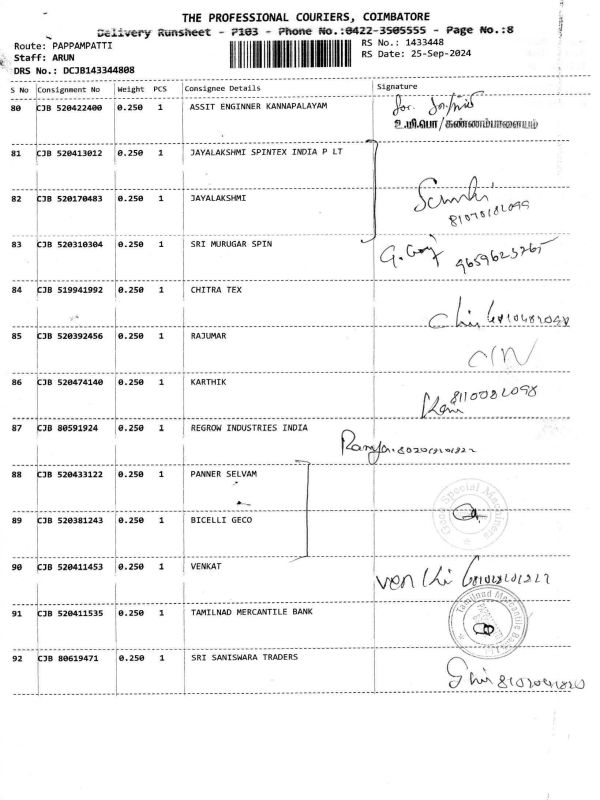 THE PROFESSIONAL COURIERS, COIMBATORE
Delivery Runsheet - P103 - Phone No.:0422-3505555 - Page No.:8
Route: PAPPAMPATTI
RS No.: 1433448
Staff: ARUN
RS Date: 25-Sep-2024
DRS No.: DCJB143344808
S No Consignment No Weight PCS Consignee Details Signature
80 CJB 520422400 0.250 1 ASSIT ENGINNER KANNAPALAYAM
உ.மி.பொ/கண்ணம்பாளையம்
81 CJB 520413012 0.250 1 JAYALAKSHMI SPINTEX INDIA P LT
82 CJB 520170483 0.250 1 JAYALAKSHMI
83 CJB 520310304 0.250 1 SRI MURUGAR SPIN
84 CJB 519941992 0.250 1 CHITRA TEX
85 CJB 520392456 0.250 1 RAJUMAR
86 CJB 520474140 0.250 1 KARTHIK
87 CJB 80591924 0.250 1 REGROW INDUSTRIES INDIA
88 CJB 520433122 0.250 1 PANNER SELVAM
Special Machiners
89 CJB 520381243 0.250 1 BICELLI GECO
90 CJB 520411453 0.250 1 VENKAT
91 CJB 520411535 0.250 1 TAMILNAD MERCANTILE BANK
Tamilnad Mercantile Bank
92 CJB 80619471 0.250 1 SRI SANISWARA TRADERS